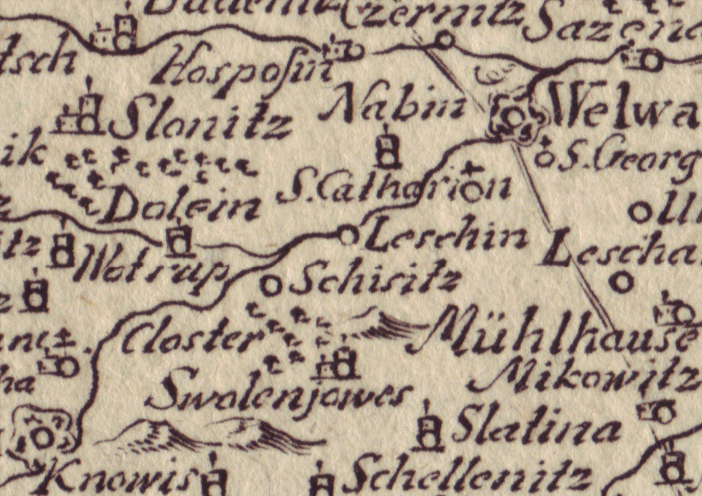 Czernitz
Sazena
tsch
Hosposin
Nabin
Welwa
Slonitz
ik
S. Georg
S. Catharion
Dolein
itz
Leschin
Lescha
Wotrup
Schisitz
Closter
Mühlhause
ha
Mikowitz
Swolenjowes
Slatina
Knowis
Schellenitz